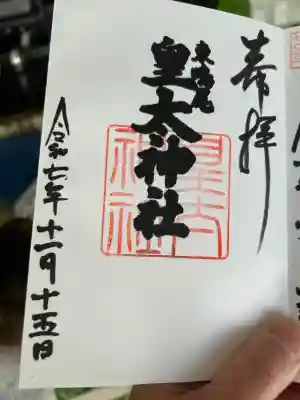 奉拝
皇太神社
令和七年十一月十五日